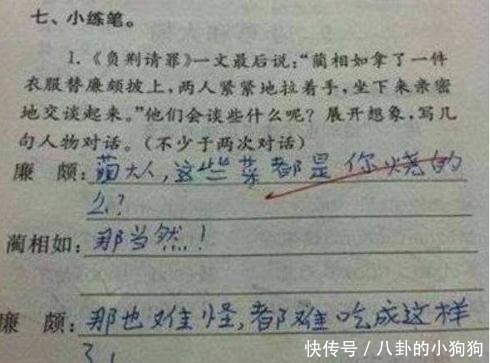 七、小练笔。
1.《负荆请罪》一文最后说:“蔺相如拿了一件
衣服替廉颇披上,两人紧紧地拉着手,坐下来亲密
地交谈起来。”他们会谈些什么呢?展开想象,写几
句人物对话。(不少于两次对话)
廉 颇:蔺大人,这些菜都是你烧的
么?
蔺相如:那当然!
廉 颇:那也难怪,都难吃成这样
了!
快传号/八卦的小狗狗